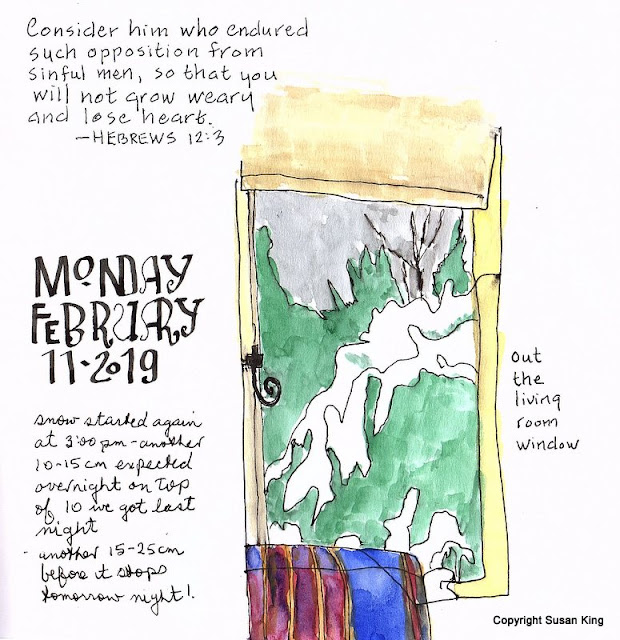 Consider him who endured
such opposition from
sinful men, so that you
will not grow weary
and lose heart.
—HEBREWS 12:3
MONDAY
FEBRUARY
11·2019
snow started again
at 3:00 pm - another
10-15 cm expected
overnight on top
of 10 we got last
night
- another 15-25cm
before it stops
tomorrow night!
out
the
living
room
window
Copyright Susan King